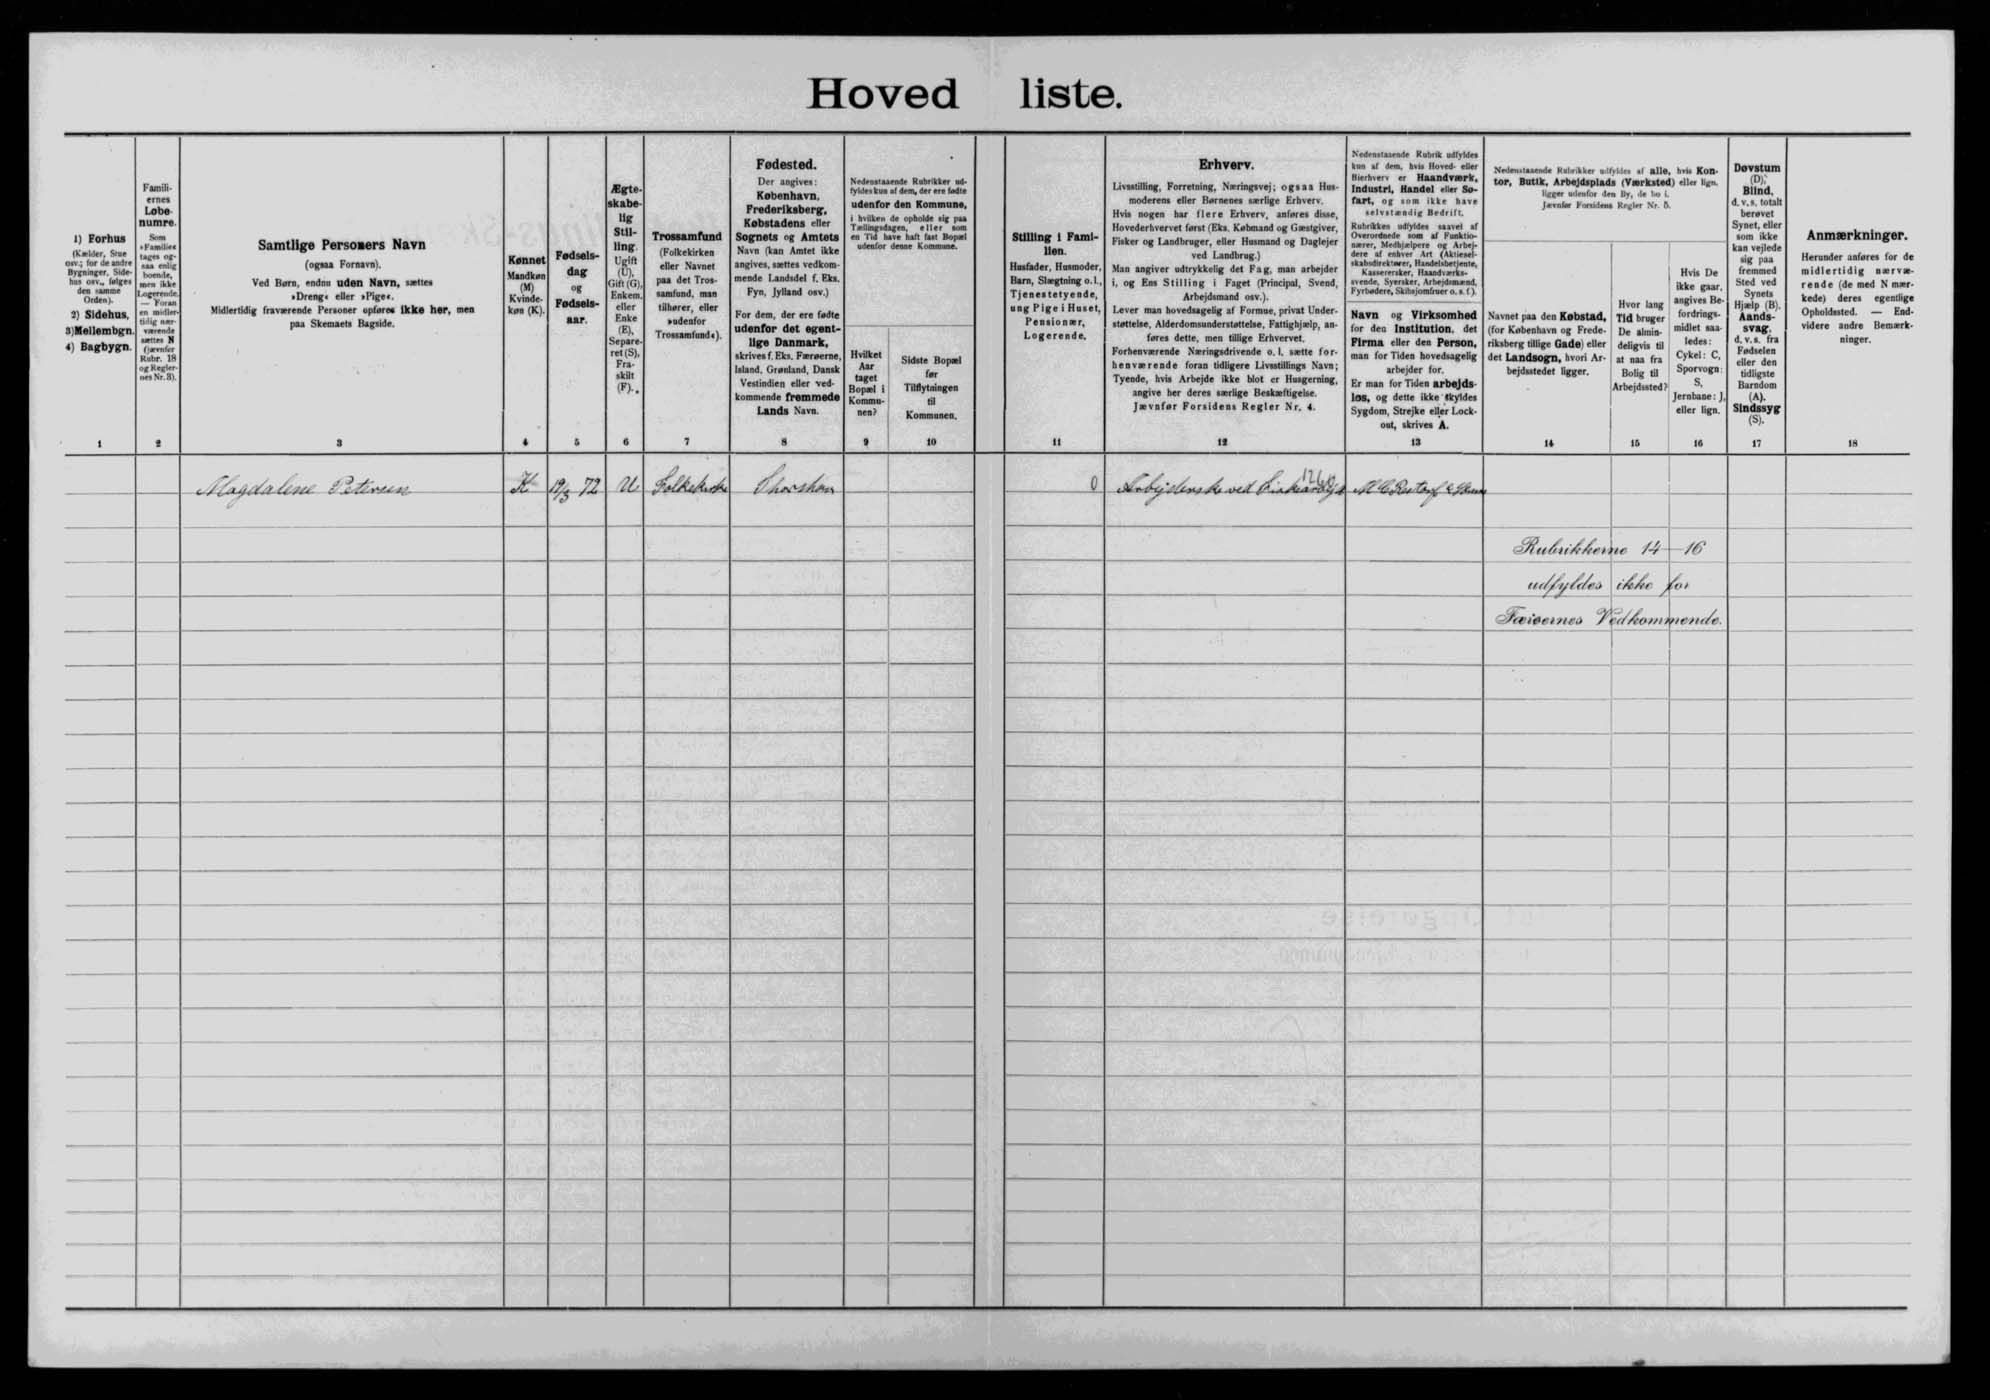 Hoved liste.
1) Forhus
(Kælder, Stue
osv.; for de andre
Bygninger, Side-
hus osv., følges
den samme
Orden).
2) Sidehus,
3) Mellembgn.
4) Bagbygn.
1
Famili-
ernes
Løbe-
numre.
Som
»Familie«
tages og-
saa enlig
boende,
men ikke
Logerende.
— Foran
en midler-
tidig nær-
værende
sættes N
(jævnfør
Rubr. 18
og Regler-
nes Nr. 3).
2
Samtlige Personers Navn
(ogsaa Fornavn).
Ved Børn, endnu uden Navn, sættes
»Dreng« eller »Pige«.
Midlertidig fraværende Personer opføres ikke her, men
paa Skemaets Bagside.
3
Kønnet
Mandkøn
(M)
Kvinde-
køn (K).
4
Fødsels-
dag
og
Fødsels-
aar.
5
Ægte-
skabe-
lig
Stil-
ling.
Ugift
(U),
Gift (G),
Enkem.
eller
Enke
(E),
Separe-
ret (S),
Fra-
skilt
(F).
6
Trossamfund
(Folkekirken
eller Navnet
paa det Tros-
samfund, man
tilhører, eller
»udenfor
Trossamfund«).
7
Fødested.
Der angives:
København,
Frederiksberg,
Købstadens eller
Sognets og Amtets
Navn (kan Amtet ikke
angives, sættes vedkom-
mende Landsdel f. Eks.
Fyn, Jylland osv.)
For dem, der ere fødte
udenfor det egent-
lige Danmark,
skrives f. Eks. Færøerne,
Island, Grønland, Dansk
Vestindien eller ved-
kommende fremmede
Lands Navn.
8
Nedenstaaende Rubrikker ud-
fyldes kun af dem, der ere fødte
udenfor den Kommune,
i hvilken de opholde sig paa
Tællingsdagen, eller som
en Tid have haft fast Bopæl
udenfor denne Kommune.
Hvilket
Aar
taget
Bopæl i
Kommu-
nen?
9
Sidste Bopæl
før
Tilflytningen
til
Kommunen.
10
Stilling i Fami-
lien.
Husfader, Husmoder,
Barn, Slægtning o.l.,
Tjenestetyende,
ung Pige i Huset,
Pensionær,
Logerende.
11
Erhverv.
Livsstilling, Forretning, Næringsvej; ogsaa Hus-
moderens eller Børnenes særlige Erhverv.
Hvis nogen har flere Erhverv, anføres disse,
Hovederhvervet først (Eks. Købmand og Gæstgiver,
Fisker og Landbruger, eller Husmand og Daglejer
ved Landbrug.)
Man angiver udtrykkelig det Fag, man arbejder
i, og Ens Stilling i Faget (Principal, Svend,
Arbejdsmand osv.).
Lever man hovedsagelig af Formue, privat Under-
støttelse, Alderdomsunderstøttelse, Fattighjælp, an-
føres dette, men tillige Erhvervet.
Forhenværende Næringsdrivende o. l. sætte for-
henværende foran tidligere Livsstillings Navn;
Tyende, hvis Arbejde ikke blot er Husgerning,
angive her deres særlige Beskæftigelse.
Jævnfør Forsidens Regler Nr. 4.
12
Nedenstaaende Rubrik udfyldes
kun af dem, hvis Hoved- eller
Bierhverv er Haandværk,
Industri, Handel eller Sø-
fart, og som ikke have
selvstændig Bedrift.
Rubrikken udfyldes saavel af
Overordnede som af Funktio-
nærer, Medhjælpere og Arbej-
dere af enhver Art (Aktiesel-
skabsdirektører, Handelsbetjente,
Kasserersker, Haandværks-
svende, Syersker, Arbejdsmænd,
Fyrbødere, Skibsjomfruer o. s. f.).
Navn og Virksomhed
for den Institution, det
Firma eller den Person,
man for Tiden hovedsagelig
arbejder for.
Er man for Tiden arbejds-
løs, og dette ikke skyldes
Sygdom, Strejke eller Lock-
out, skrives A.
13
Nedenstaaende Rubrikker udfyldes af alle, hvis Kon-
tor, Butik, Arbejdsplads (Værksted) eller lign.
ligger udenfor den By, de bo i.
Jævnfør Forsidens Regler Nr. 5.
Navnet paa den Købstad,
(for København og Frede-
riksberg tillige Gade) eller
det Landsogn, hvori Ar-
bejdsstedet ligger.
14
Hvor lang
Tid bruger
De almin-
deligvis til
at naa fra
Bolig til
Arbejdssted?
15
Hvis De
ikke gaar,
angives Be-
fordrings-
midlet saa-
ledes:
Cykel: C,
Sporvogn:
S,
Jernbane: J,
eller lign.
16
Døvstum
(D),
Blind,
d. v. s. totalt
berøvet
Synet, eller
som ikke
kan vejlede
sig paa
fremmed
Sted ved
Synets
Hjælp (B).
Aands-
svag,
d. v. s. fra
Fødselen
eller den
tidligste
Barndom
(A).
Sindssyg
(S).
17
Anmærkninger.
Herunder anføres for de
midlertidig nærvæ-
rende (de med N mær-
kede) deres egentlige
Opholdssted. — End-
videre andre Bemærk-
ninger.
18
Magdalene Petersen K 19/3 72 U Folkekirke Thorshavn 0 Arbejderske ved M C Restorf & Sønner
Rubrikkerne 14-16
udfyldes ikke for
Færøernes Vedkommende.